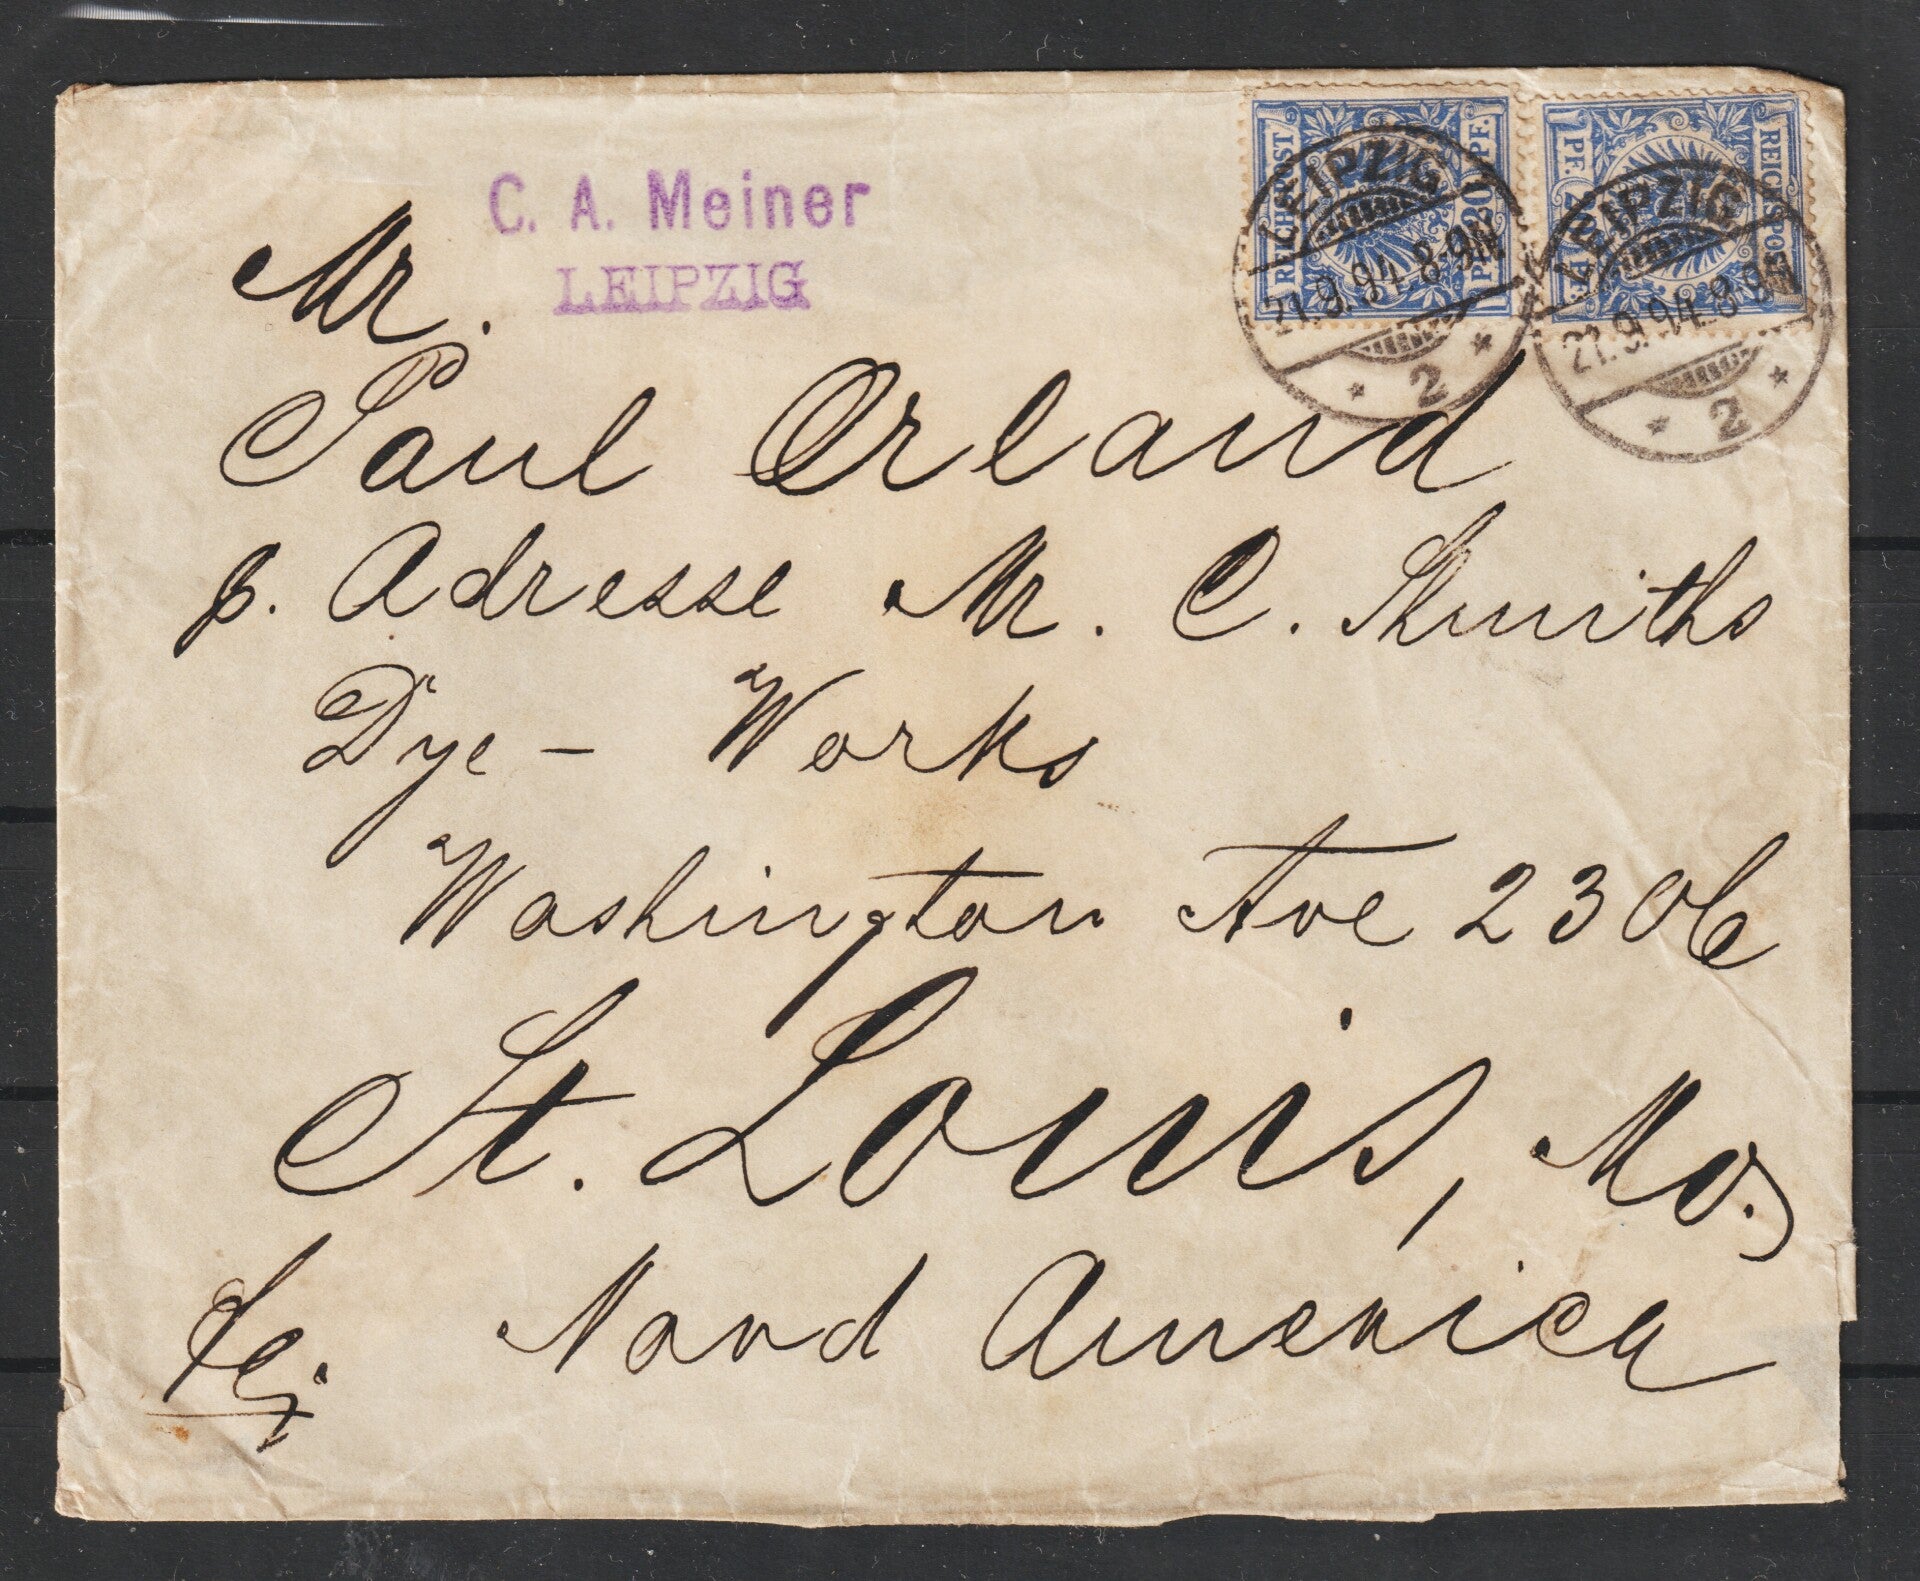 C. A. Meiner
LEIPZIG
REICHSPOST
20 PF.
20 PF.
REICHSPOST
LEIPZIG
21.9.94.8-9N
* 2 *
LEIPZIG
21.9.94.8-9N
* 2 *
Mr.
Paul Orland
p. Adresse Mr. C.
Dye - Works
Washington Ave 2306
St. Louis, Mo.
Nord America